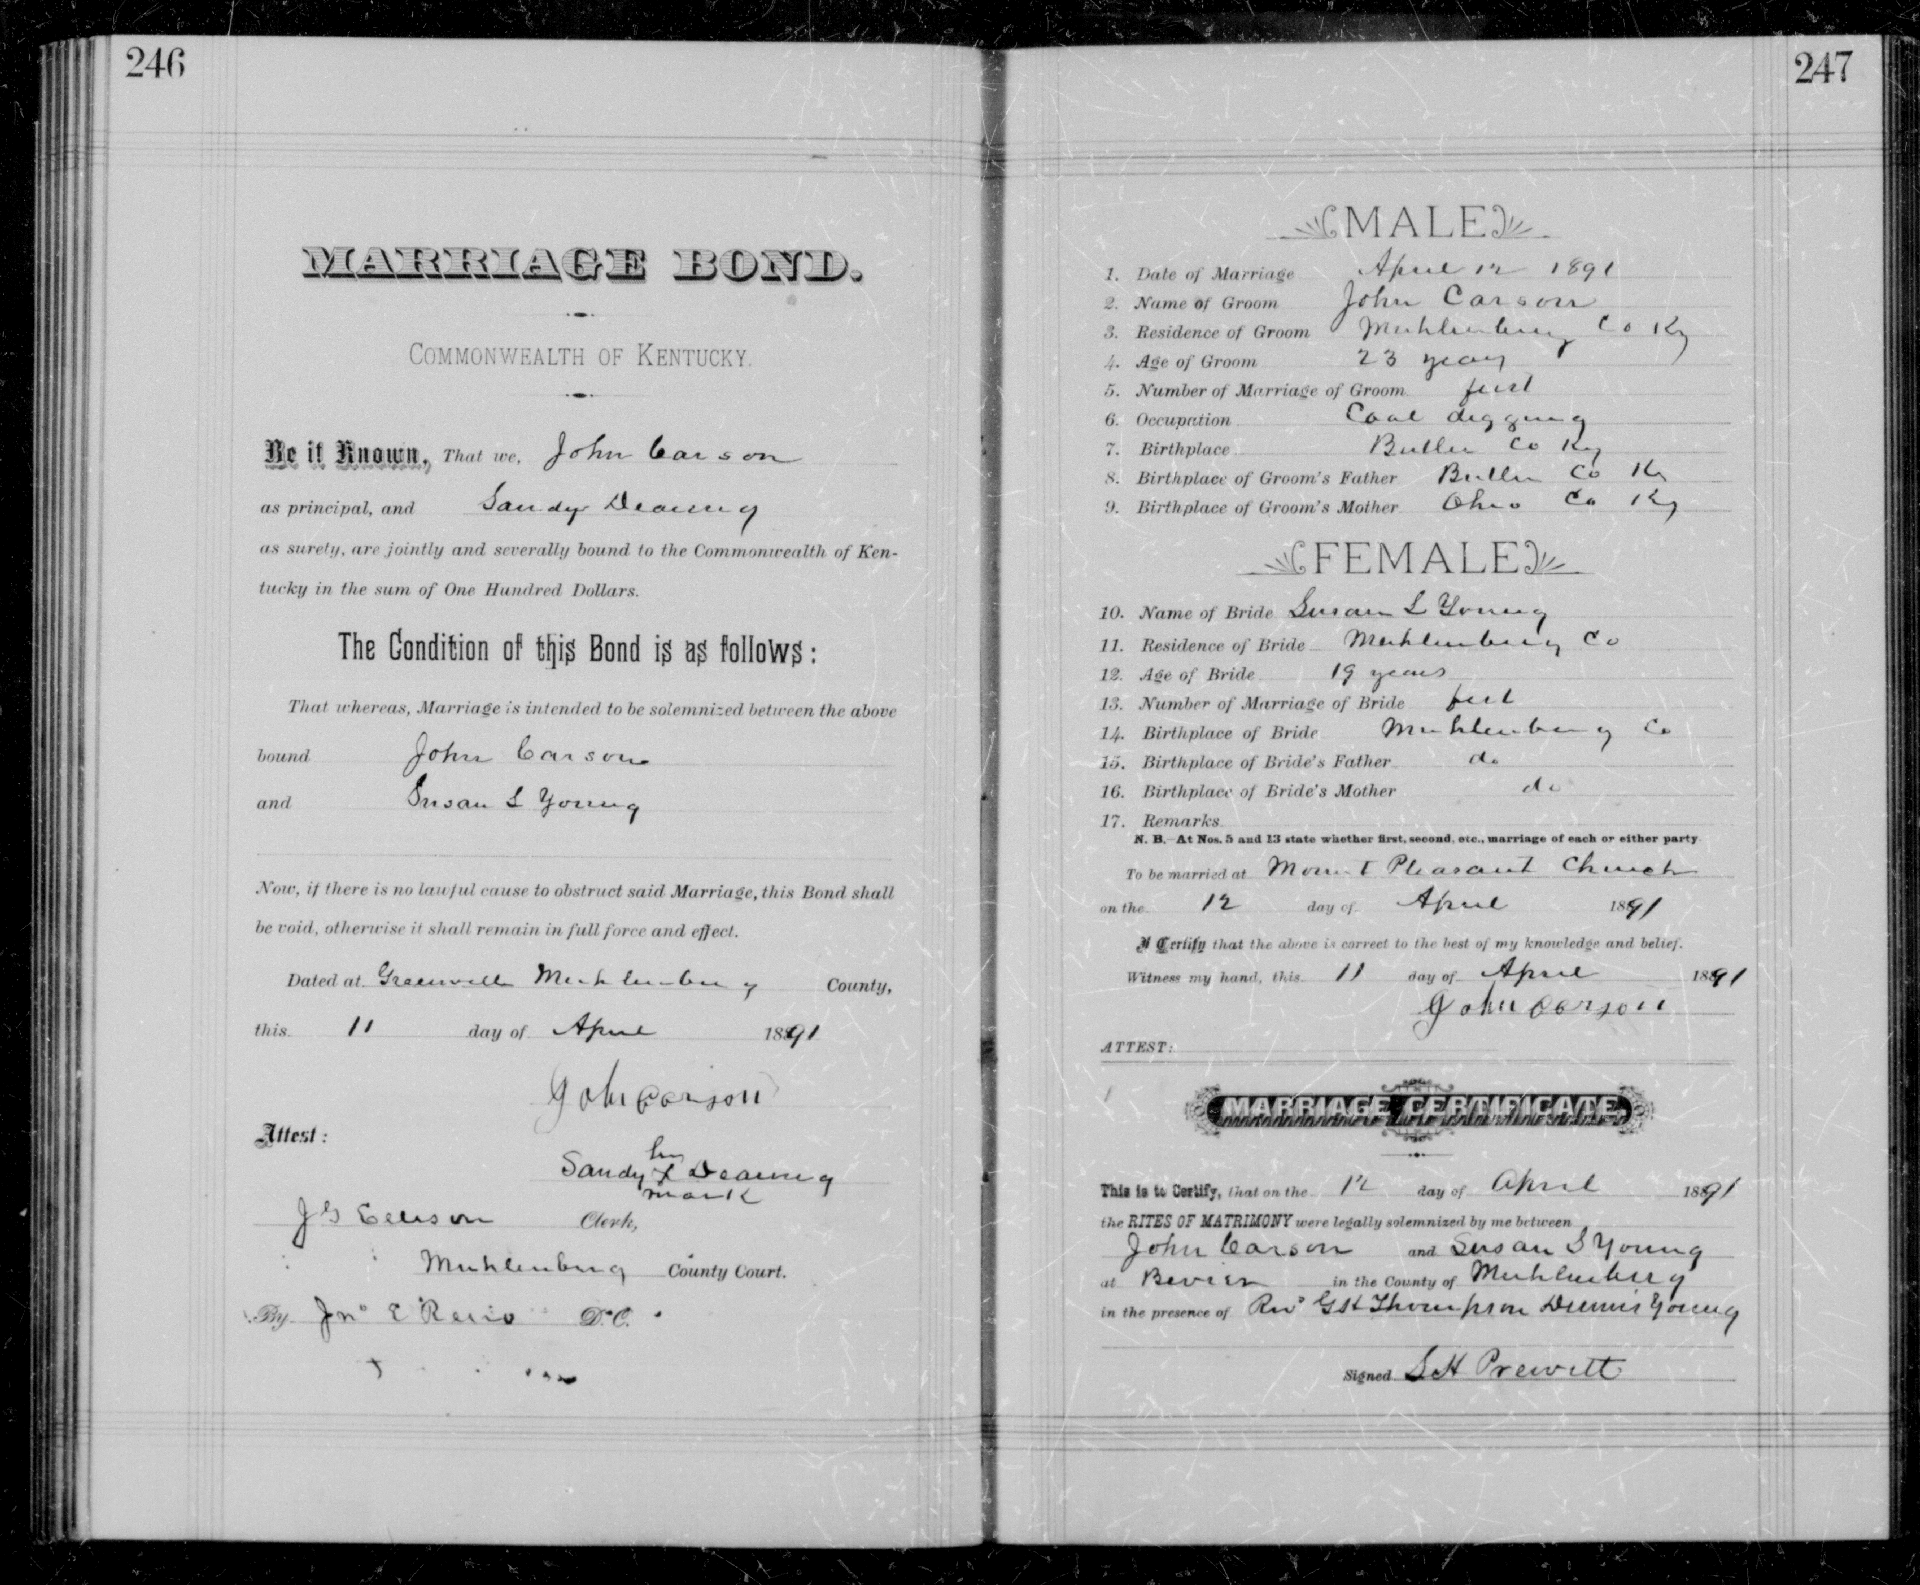 246
MARRIAGE BOND.
COMMONWEALTH OF KENTUCKY.
Be it Known, That we, John Carson
as principal, and Sandy Dearing
as surety, are jointly and severally bound to the Commonwealth of Ken-
tucky in the sum of One Hundred Dollars.
The Condition of this Bond is as follows:
That whereas, Marriage is intended to be solemnized between the above
bound John Carson
and Susan L Young
Now, if there is no lawful cause to obstruct said Marriage, this Bond shall
be void, otherwise it shall remain in full force and effect.
Dated at Greenville Muhlenberg County,
this 11 day of April 1891
John Carson
Attest:
his
Sandy X Dearing
mark
Clerk,
Muhlenberg County Court.
By Jno E Reno D.C.
247
MALE
1. Date of Marriage April 12 1891
2. Name of Groom John Carson
3. Residence of Groom Muhlenberg Co Ky
4. Age of Groom 23 years
5. Number of Marriage of Groom first
6. Occupation Coal digging
7. Birthplace Butler Co Ky
8. Birthplace of Groom's Father Butler Co Ky
9. Birthplace of Groom's Mother Ohio Co Ky
FEMALE
10. Name of Bride Susan L Young
11. Residence of Bride Muhlenberg Co
12. Age of Bride 19 years
13. Number of Marriage of Bride first
14. Birthplace of Bride Muhlenberg Co
15. Birthplace of Bride's Father do
16. Birthplace of Bride's Mother do
17. Remarks
N. B.—At Nos. 5 and 13 state whether first, second, etc., marriage of each or either party.
To be married at Mount Pleasant Church
on the 12 day of April 1891
I Certify that the above is correct to the best of my knowledge and belief.
Witness my hand, this 11 day of April 1891
John Carson
ATTEST:
MARRIAGE CERTIFICATE.
This is to Certify, that on the 12 day of April 1891
the RITES OF MATRIMONY were legally solemnized by me between
John Carson and Susan S Young
at Bevier in the County of Muhlenberg
in the presence of Rev G H Thompson Dennis Young
Signed S H Prewitt